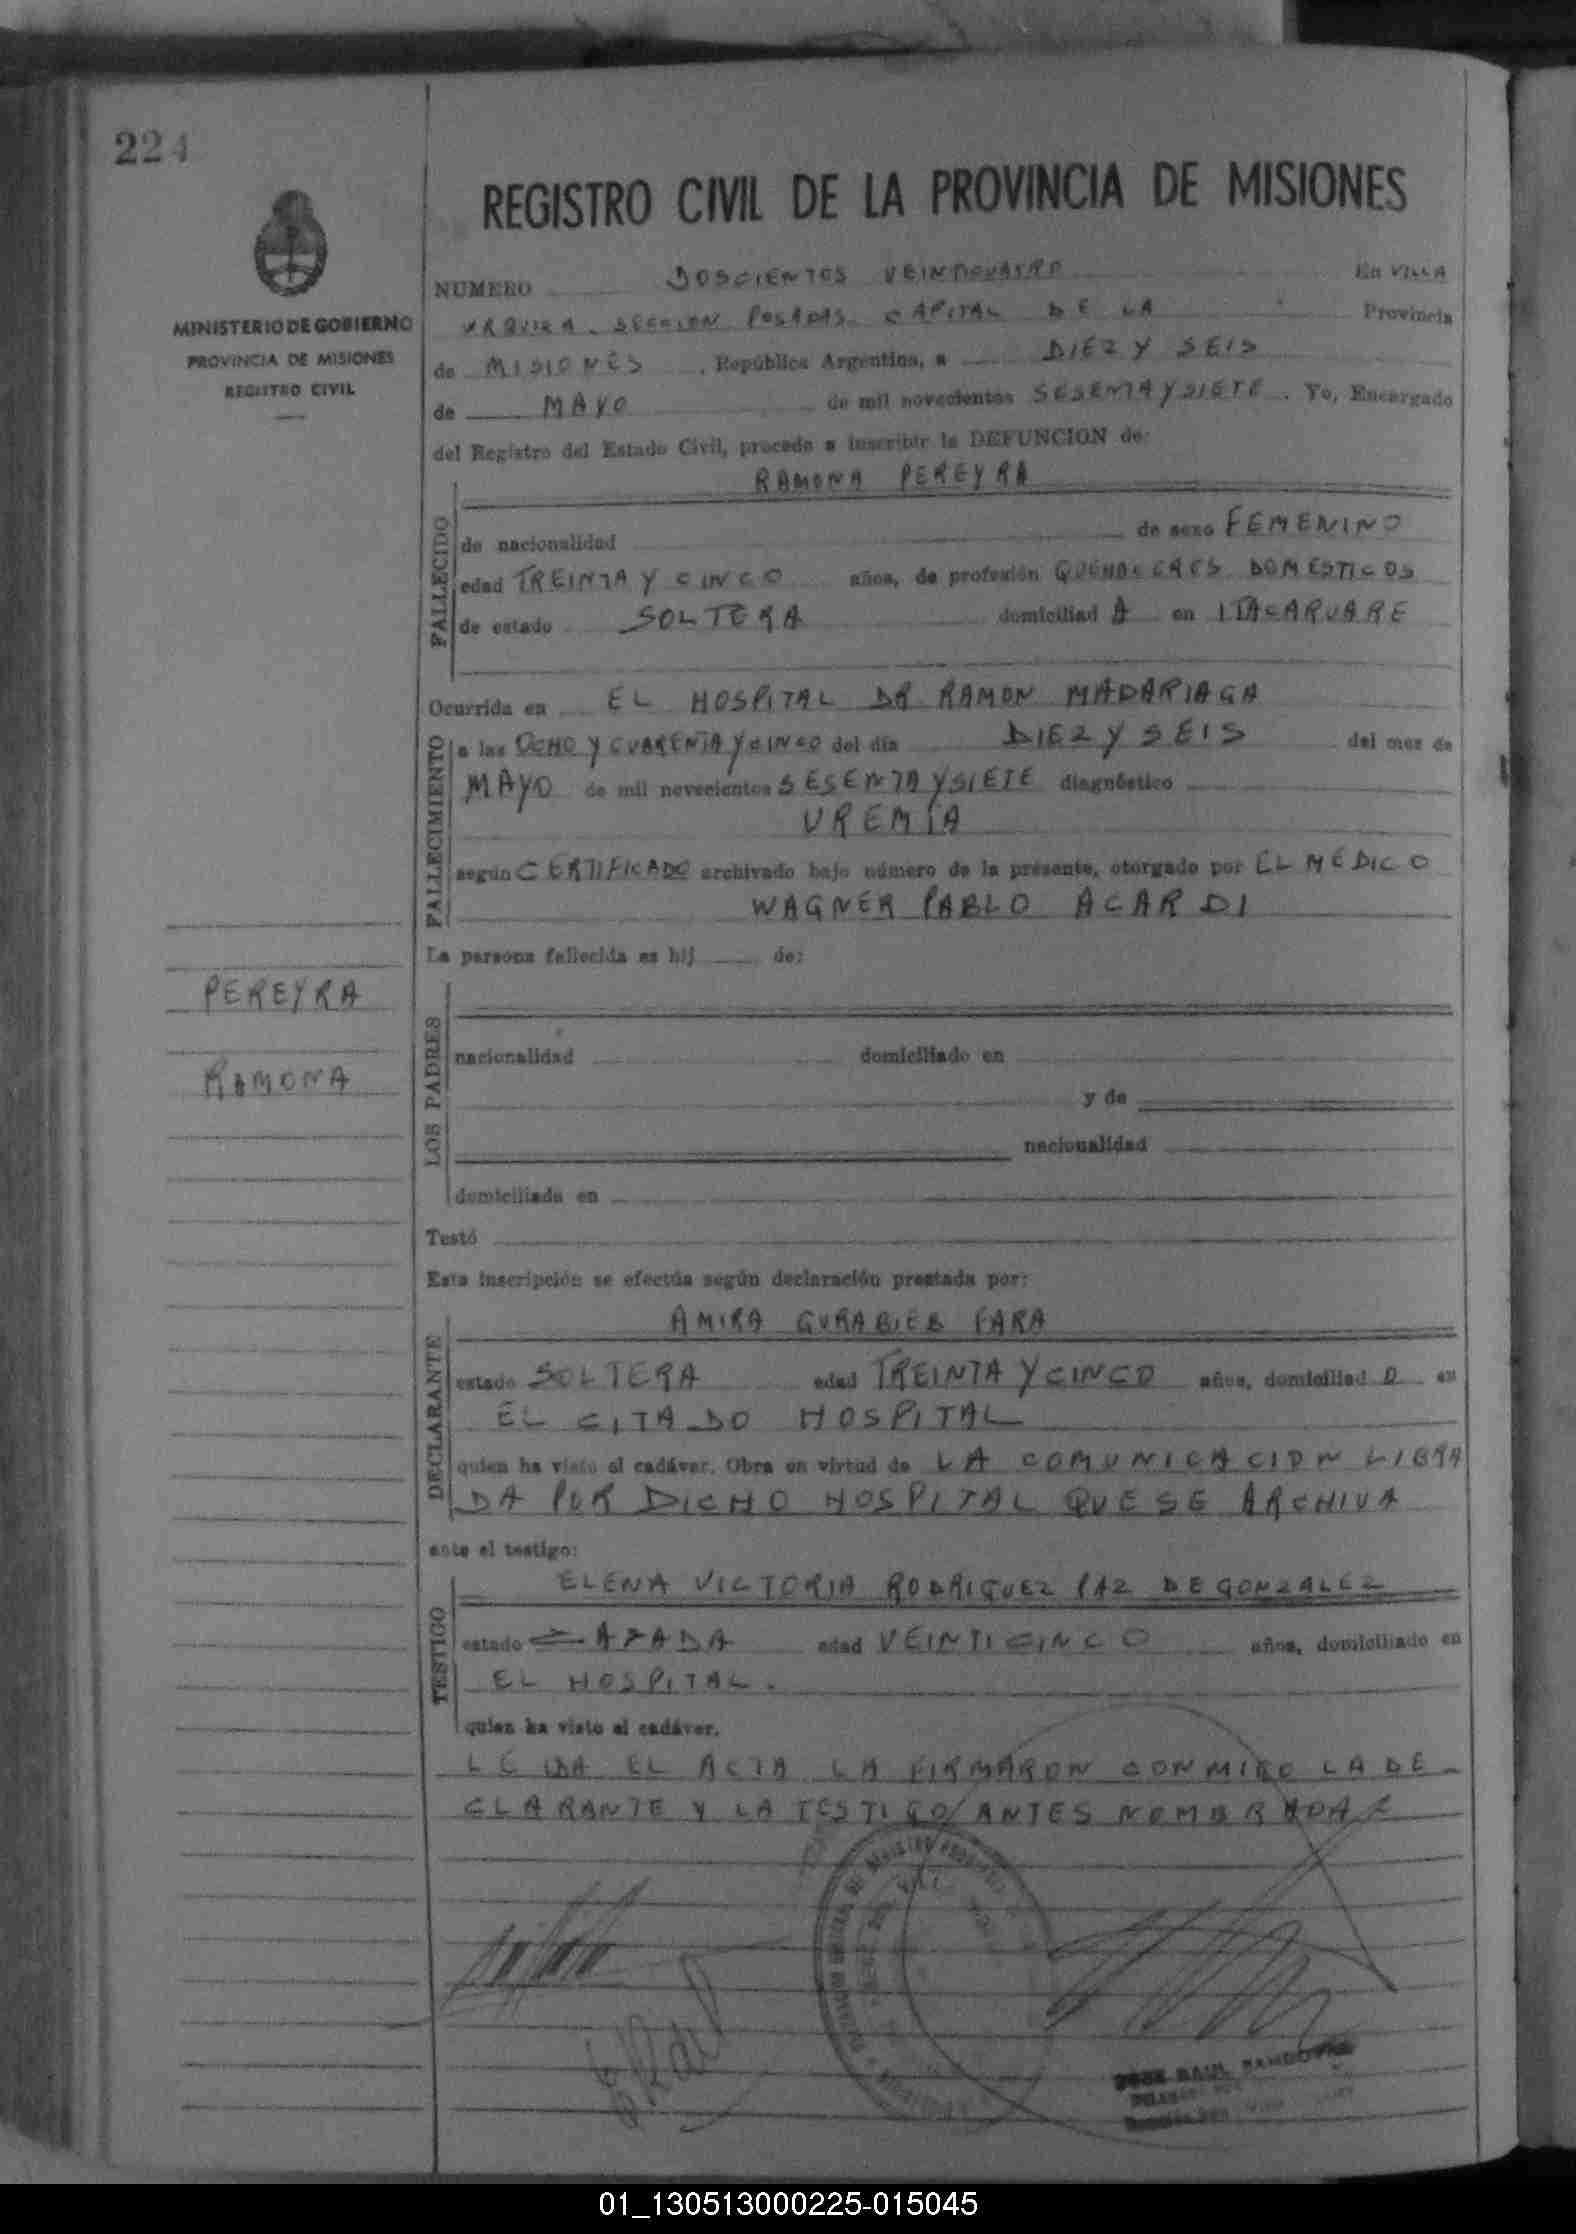 224
REGISTRO CIVIL DE LA PROVINCIA DE MISIONES
MINISTERIO DE GOBIERNO
PROVINCIA DE MISIONES
REGISTRO CIVIL
NUMERO DOSCIENTOS VEINTICUATRO En VILLA
URQUIZA. SECCION POSADAS CAPITAL DE LA Provincia
de MISIONES, República Argentina, a DIEZ Y SEIS
de MAYO de mil novecientos SESENTA Y SIETE. Yo, Encargado
del Registro del Estado Civil, procedo a inscribir la DEFUNCION de:
RAMONA PEREYRA
FALLECIDO
de nacionalidad de sexo FEMENINO
edad TREINTA Y CINCO años, de profesión QUEHACERES DOMESTICOS
de estado SOLTERA domiciliad A en ITACARUARE
Ocurrida en EL HOSPITAL DR RAMON MADARIAGA
FALLECIMIENTO
a las OCHO Y CUARENTA Y CINCO del día DIEZ Y SEIS del mes de
MAYO de mil novecientos SESENTA Y SIETE diagnóstico
UREMIA
según CERTIFICADO archivado bajo número de la presente, otorgado por EL MEDICO
WAGNER PABLO ACARDI
La persona fallecida es hij de:
PEREYRA
RAMONA
LOS PADRES
nacionalidad domiciliado en
y de
nacionalidad
domiciliada en
Testó
Esta inscripción se efectúa según declaración prestada por:
AMIRA GURABIEB FARA
DECLARANTE
estado SOLTERA edad TREINTA Y CINCO años, domiciliad O en
EL CITADO HOSPITAL
quien ha visto el cadáver. Obra en virtud de LA COMUNICACION LIBRA
DA POR DICHO HOSPITAL QUE SE ARCHIVA
ante el testigo:
ELENA VICTORIA RODRIGUEZ PAZ DE GONZALEZ
TESTIGO
estado CASADA edad VEINTICINCO años, domiciliado en
EL HOSPITAL.
quien ha visto el cadáver.
LEIDA EL ACTA LA FIRMARON CONMIGO LA DE-
CLARANTE Y LA TESTIGO ANTES NOMBRADAS
JOSE RAUL SANDOVAL
01_130513000225-015045